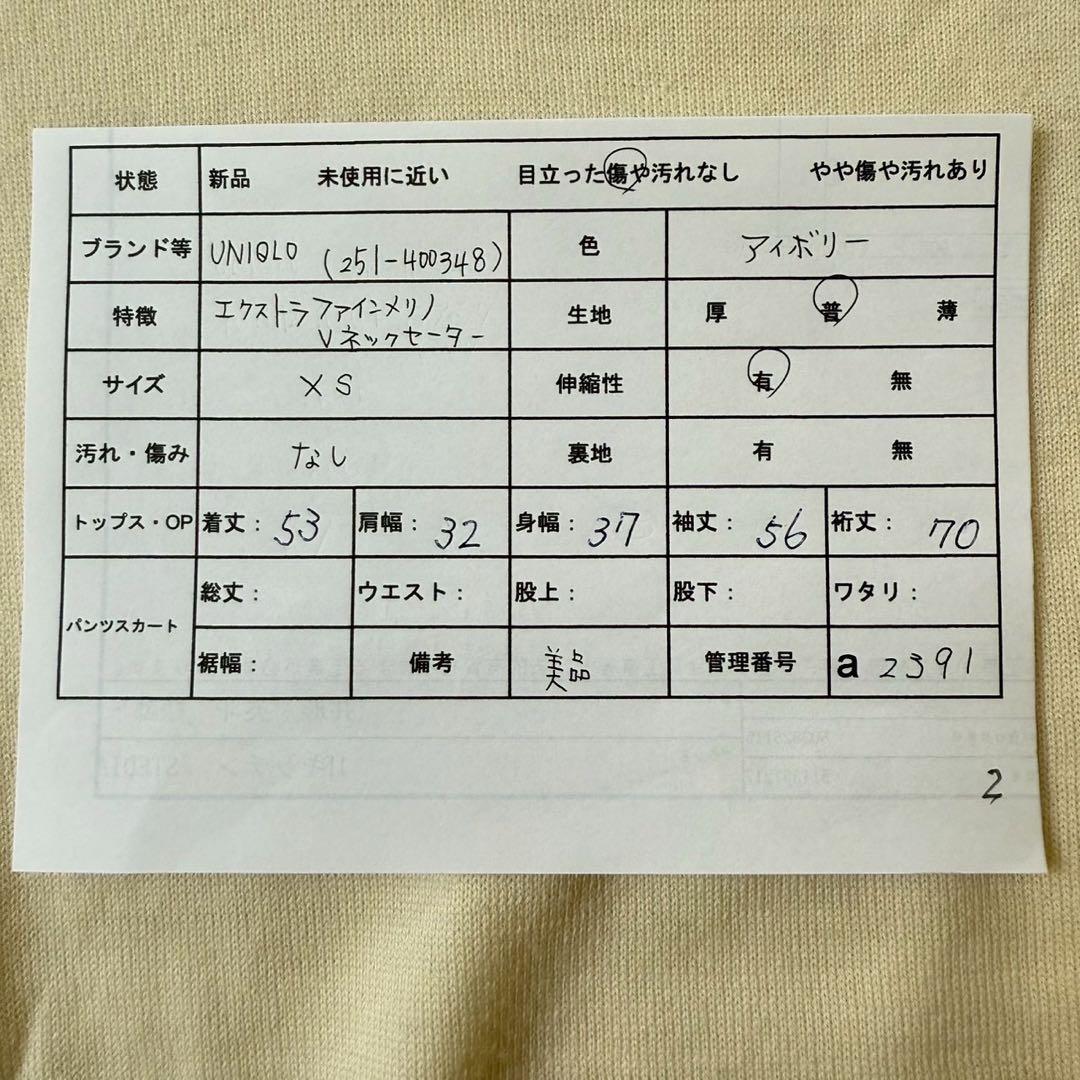 状態 新品 未使用に近い 目立った傷や汚れなし やや傷や汚れあり
ブランド等 UNIQLO (251-400348) 色 アイボリー
特徴 エクストラファインメリノ
Vネックセーター 生地 厚 普 薄
サイズ XS 伸縮性 有 無
汚れ・傷み なし 裏地 有 無
トップス・OP 着丈: 53 肩幅: 32 身幅: 37 袖丈: 56 裄丈: 70
パンツスカート 総丈: ウエスト: 股上: 股下: ワタリ:
裾幅: 備考 美品 管理番号 a 2391
2